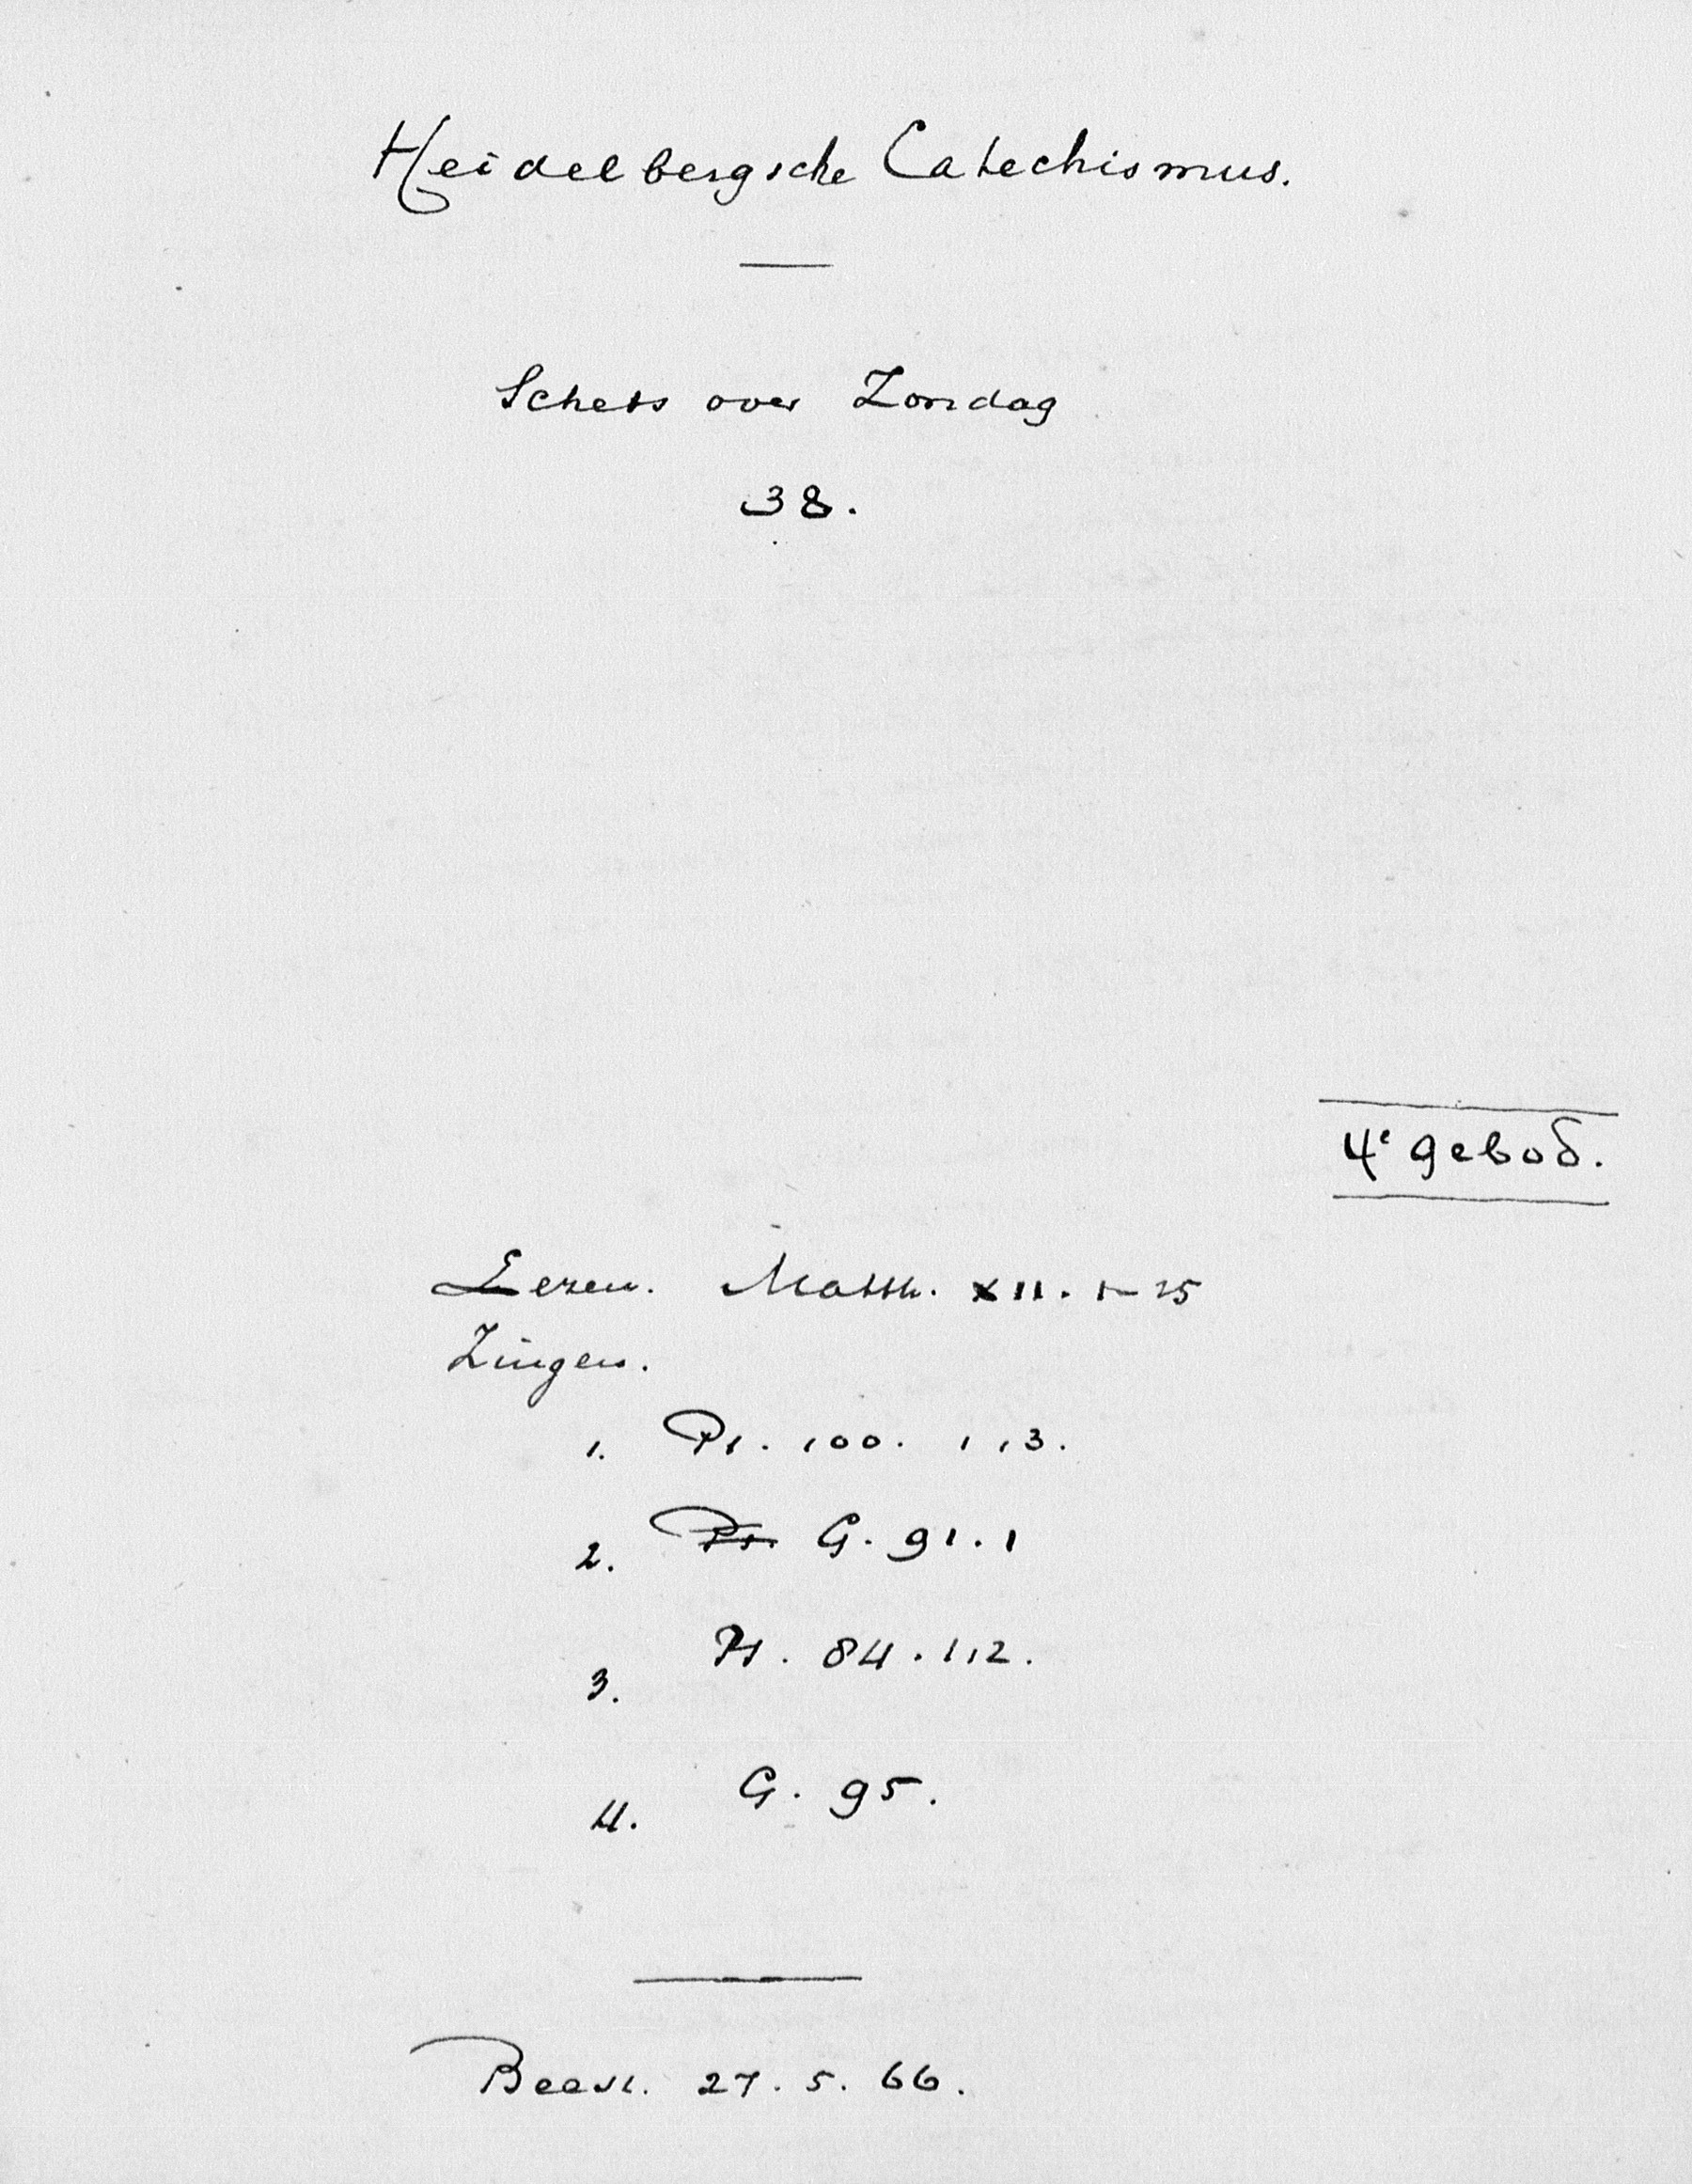 Heidelbergsche Catechismus.
Schets over Zondag
38.
4e gebod.
Lezen. Matth. XII. 1-25
Zingen.
1. Ps. 100. 1,3.
2. Ps. G. 91.1
3. Ps. 84.1,2.
4. G. 95.
Beesd. 27.5.66.